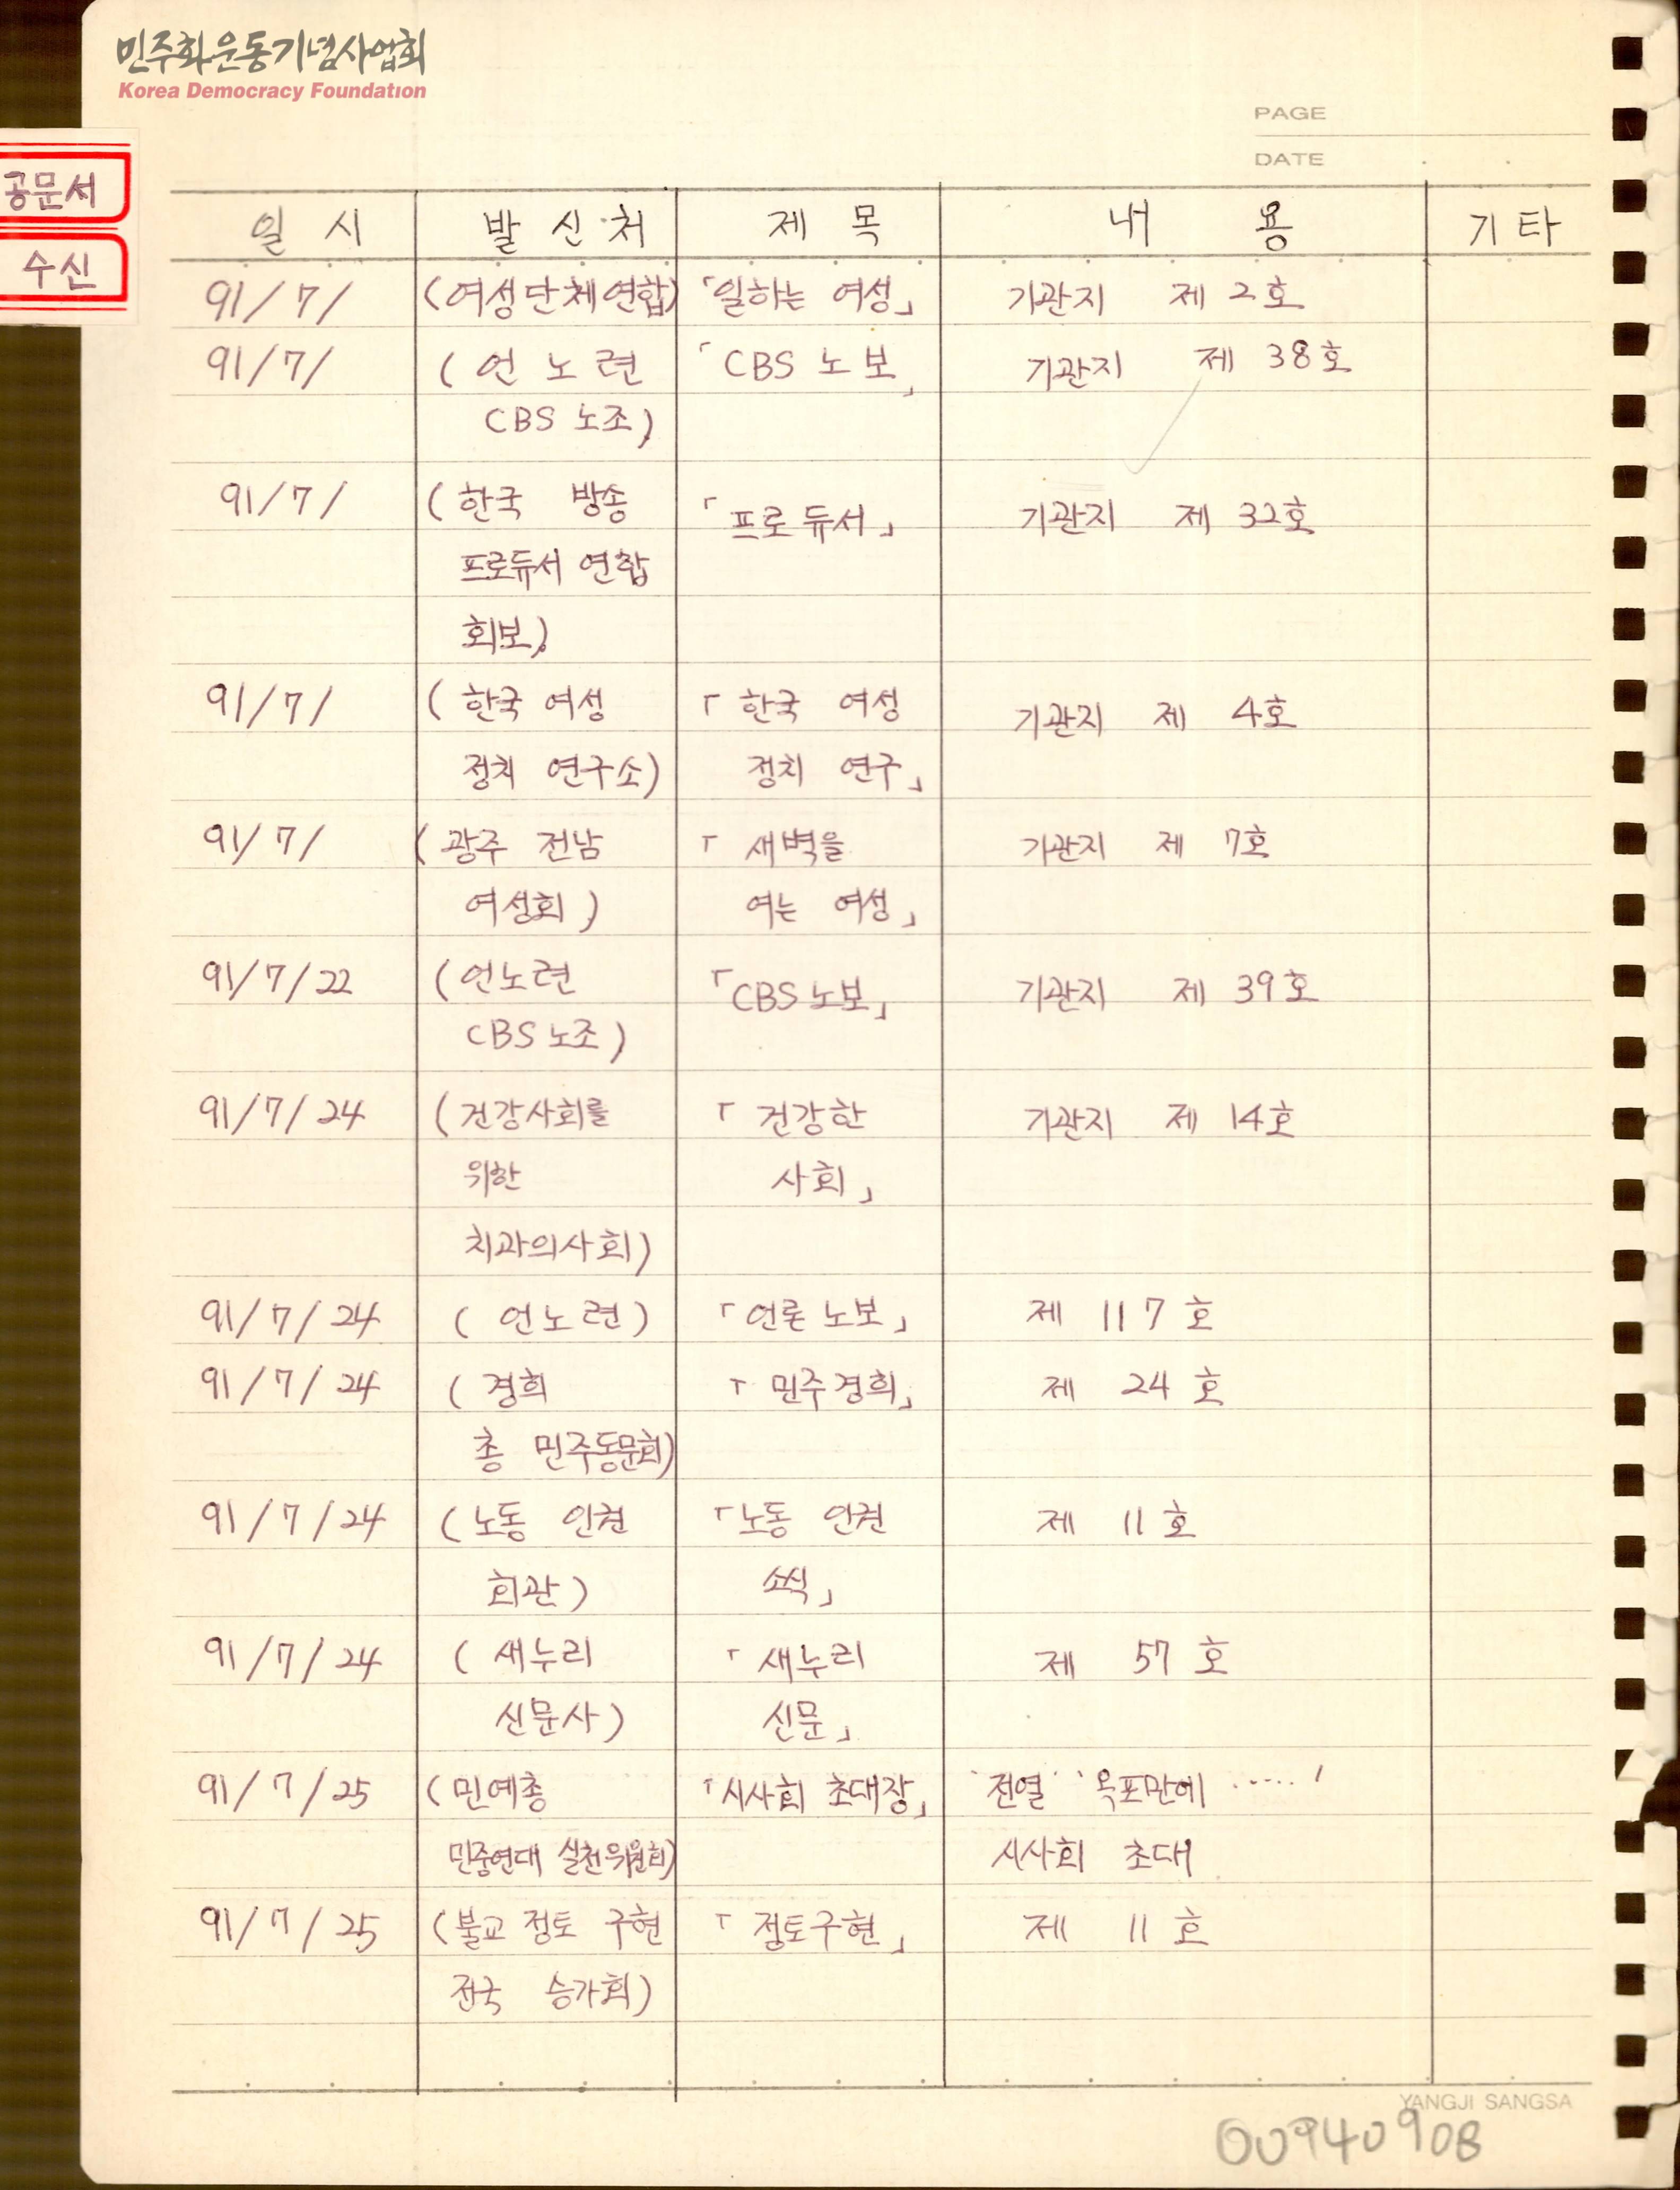 민주화운동기념사업회
Korea Democracy Foundation
PAGE
DATE
공문서
수신
일 시 발 신 처 제 목 내 용 기 타
91/7/ (여성단체연합) 「일하는 여성」 기관지 제 2호
91/7/ (언 노 련 「CBS 노보」 기관지 제 38호
CBS 노조)
91/7/ (한국 방송 「프로듀서」 기관지 제 32호
프로듀서 연합
회보)
91/7/ (한국 여성 「한국 여성 기관지 제 4호
정치 연구소) 정치 연구」
91/7/ (광주 전남 「새벽을 기관지 제 7호
여성회) 여는 여성」
91/7/22 (언노련 「CBS 노보」 기관지 제 39호
CBS 노조)
91/7/24 (건강사회를 「건강한 기관지 제 14호
위한 사회」
치과의사회)
91/7/24 (언노련) 「언론노보」 제 117호
91/7/24 (경희 「민주경희」 제 24호
총 민주동문회)
91/7/24 (노동 인권 「노동 인권 제 11호
회관) 소식」
91/7/24 (새누리 「새누리 제 57호
신문사) 신문」
91/7/25 (민예총 「시사회 초대장」 전열 목포만에 ......'
민중연대 실천위원회) 시사회 초대
91/7/25 (불교 정토 구현 「정토구현」 제 11호
전국 승가회)
YANGJI SANGSA
00940908